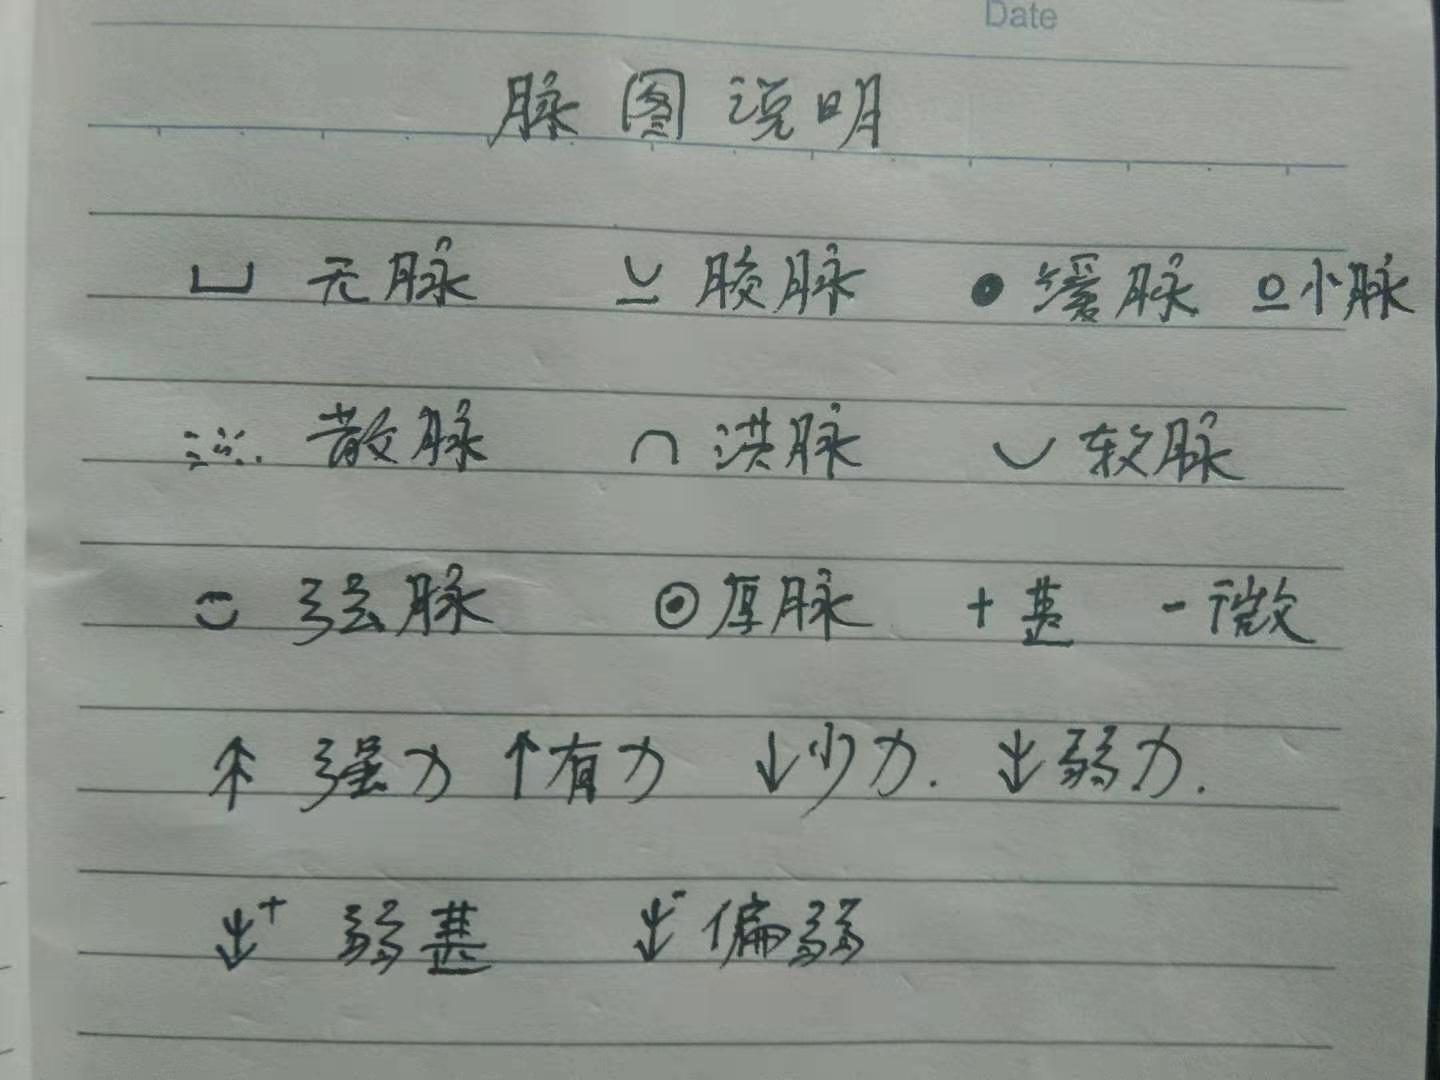 Date
脉图说明
无脉 胶脉 缓脉 小脉
散脉 洪脉 软脉
弦脉 厚脉 + 甚 - 微
强力 ↑有力 ↓少力. 弱力.
弱甚 偏弱